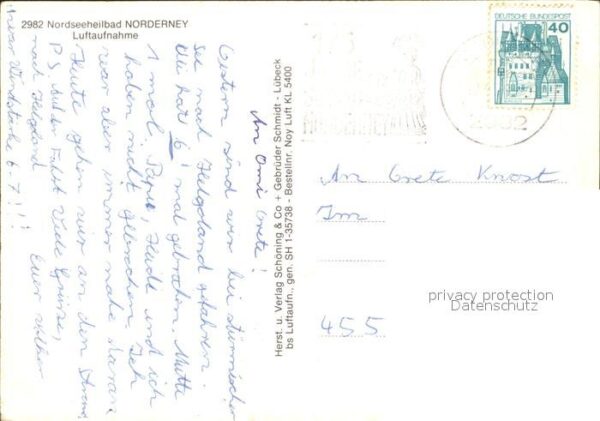 2982 Nordseeheilbad NORDERNEY
Luftaufnahme
An Omi Grete!
Gestern sind wir bei stürmischer
See nach Helgoland gefahren.
Ulli hat 6! mal gebrochen. Mutti
1 mal. Papa, Heidi und ich
haben nicht gebrochen. Ich
war aber immer nahe daran
Heute gehen wir an den Strand
P.S. Auf der Fahrt Viele Grüsse,
nach Helgoland Euer Volker
war Windstärke 6-7!!!
Herst. u. Verlag Schöning & Co + Gebrüder Schmidt - Lübeck
bs Luftaufn., gen. SH 1-35738 - Bestellnr. Noy Luft KL 5400
DEUTSCHE BUNDESPOST
40
2982
An Grete Knost
Im
455
privacy protection
Datenschutz